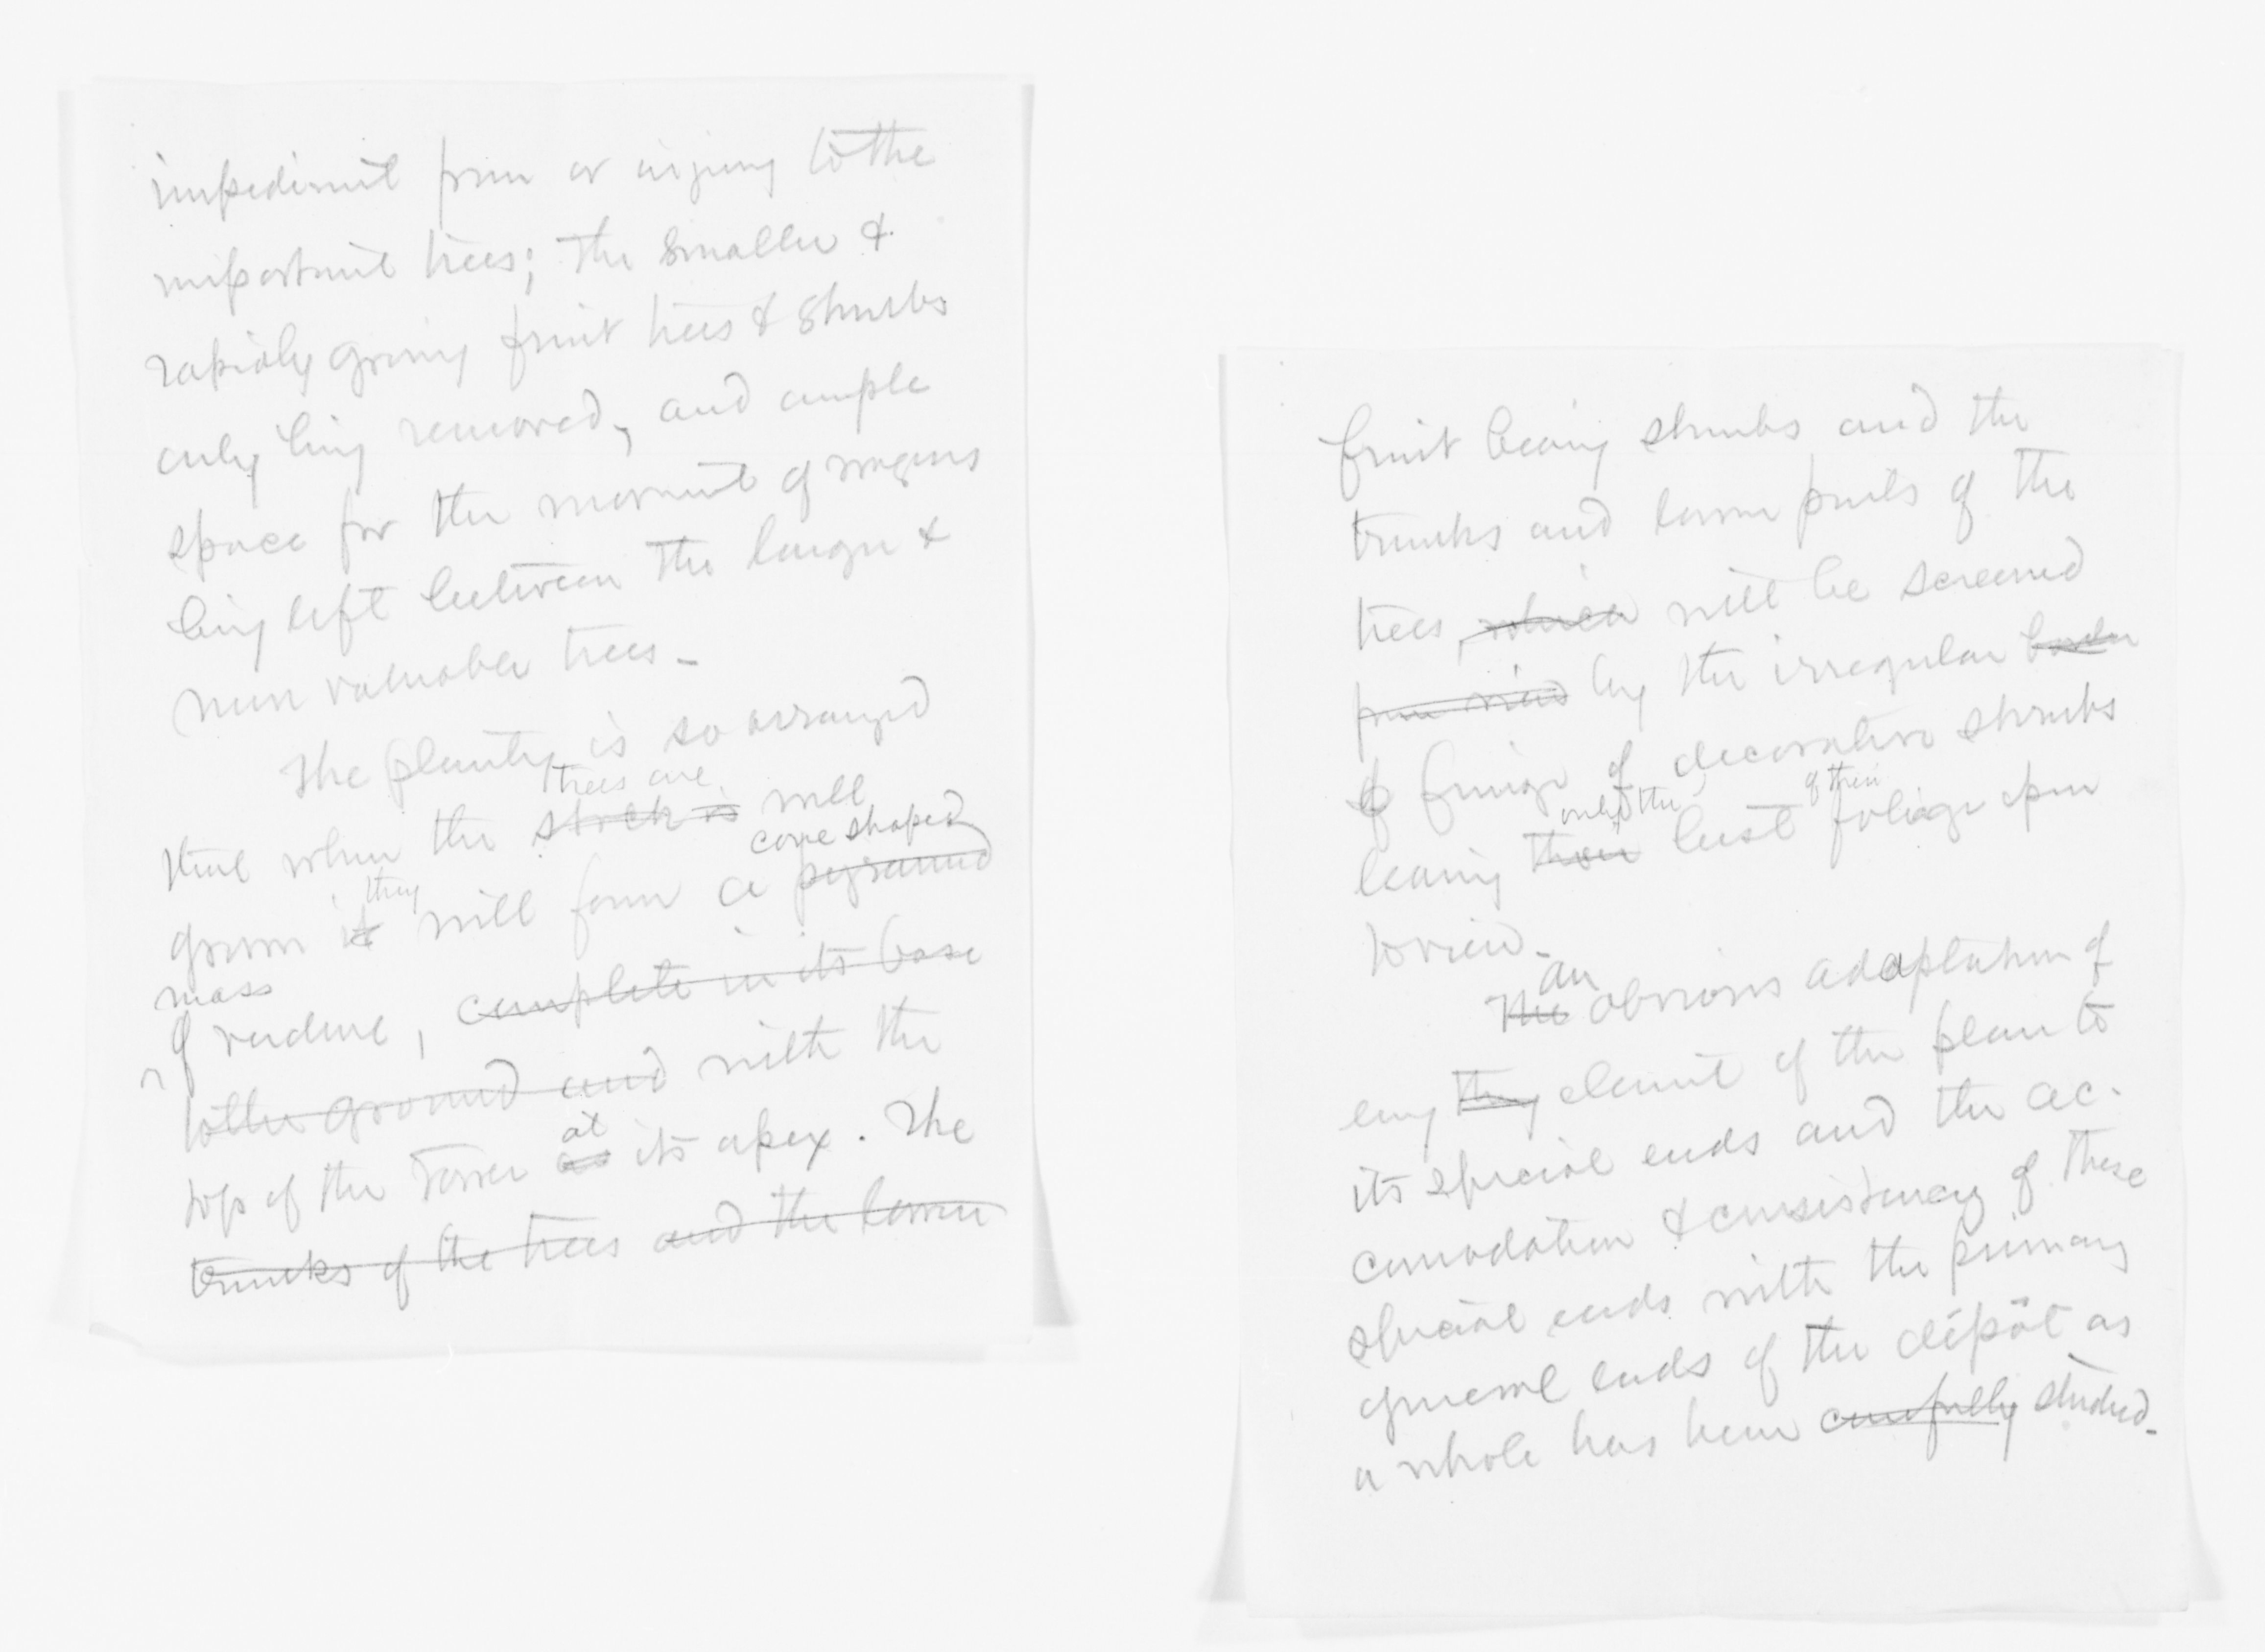 impediment from or injury to the
important trees; the smaller &
rapidly growing fruit trees & shrubs
only being removed, and ample
space for the movement of wagons
being left between the larger &
more valuable trees -
The planting is so arranged
trees are
that when the stock is well
cone shaped
they
grown it will form a pyramid
mass
of verdure, complete in its base
to the ground and with the
at
top of the Tower as its apex. The
trunks of the trees and the lower
fruit bearing shrubs and the
trunks and lower parts of the
trees, which will be screened
from view by the irregular border
of fringe of decorative shrubs
only the of their
leaving their best foliage open
to view -
an
The obvious adaptation of
every thing element of the plan to
its special ends and the ac-
comodation & consistency of these
special ends with the primary
general ends of the dépôt as
a whole has been carefully studied -